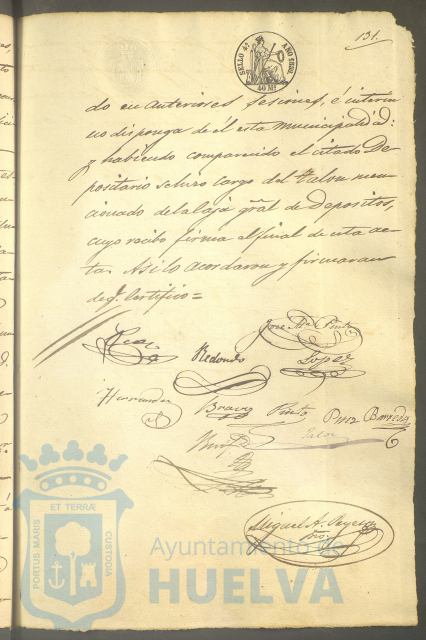 131.
SELLO 4º AÑO 1860.
40 Ms
do en anteriores sesiones, é interin
no disponga de él esta Municipalidad:
y habiendo comparecido el citado De
positario se hizo cargo del talon men
cionado de la Caja gral de Depositos,
cuyo recibo firma al final de esta ac
ta. Asi lo acordaron y firmaron
de q. Certifico=
José M. Pinto
Redondo
Lopez
Hernandez
Bravo Pinto Perez Barreda
Miguel A.
PORTUS MARIS ET TERRÆ CUSTODIA
Ayuntamiento de
HUELVA